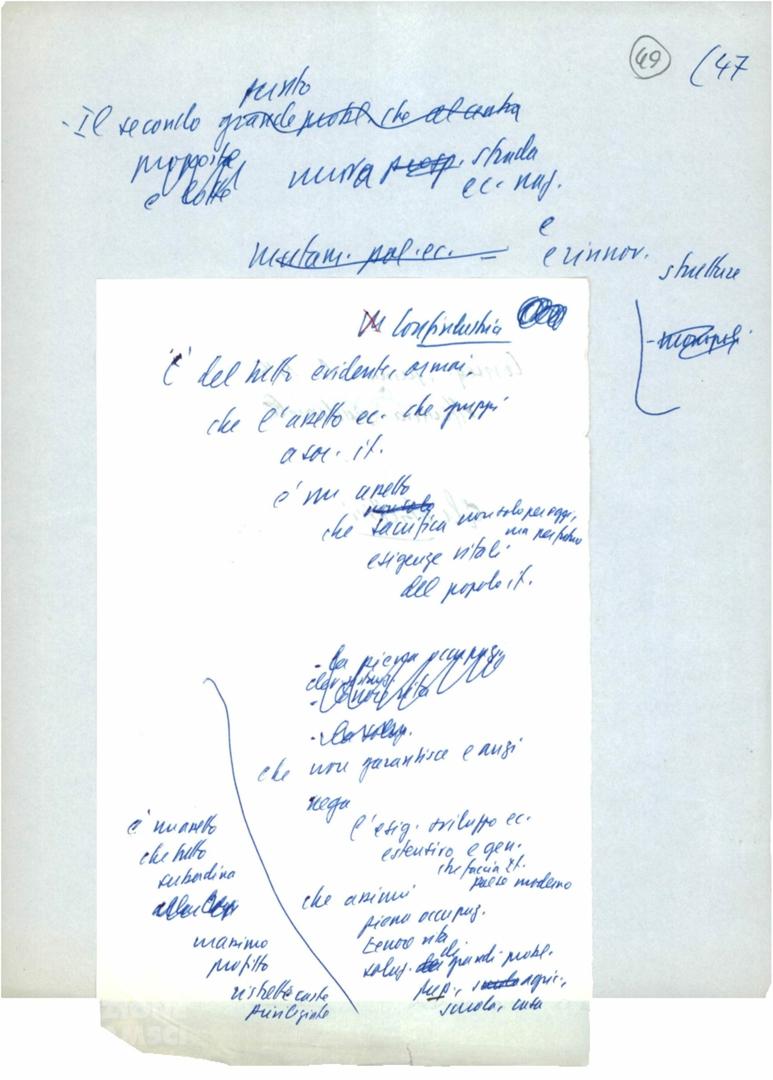 49 (47
punto
- Il secondo grande probl. che
proposte nuova prosp. strada
e lotte ec. naz.
e
mutam. pol. ec. = e rinnov. strutture
- monopoli
Confindustria
E' del tutto evidente, ormai,
che l'assetto ec. che gruppi
a soc. it.
è un assetto
non solo
che sacrifica non solo per oggi,
ma per futuro
esigenze vitali
del popolo it.
- la piena occupaz.
- tenore vita
- la soluz.
che non garantisce e anzi
nega
l'esig. sviluppo ec.
estensivo e gen.
che faccia It.
paese moderno
che assicuri
piena occupaz.
tenore vita
soluz. di grandi probl.
agric.,
scuola, casa
è un assetto
che tutto
subordina
massimo
profitto
ristrette caste
privilegiate